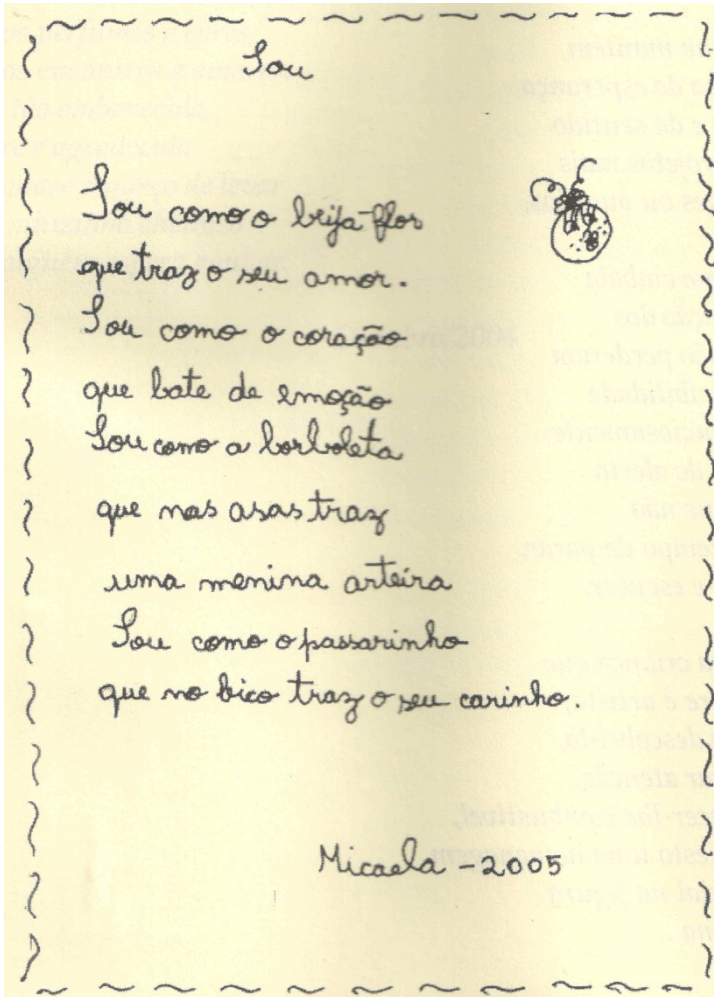 Sou
Sou como o beija-flor
que traz o seu amor.
Sou como o coração
que bate de emoção
Sou como a borboleta
que nas asas traz
uma menina arteira
Sou como o passarinho
que no bico traz o seu carinho.
Micaela - 2005